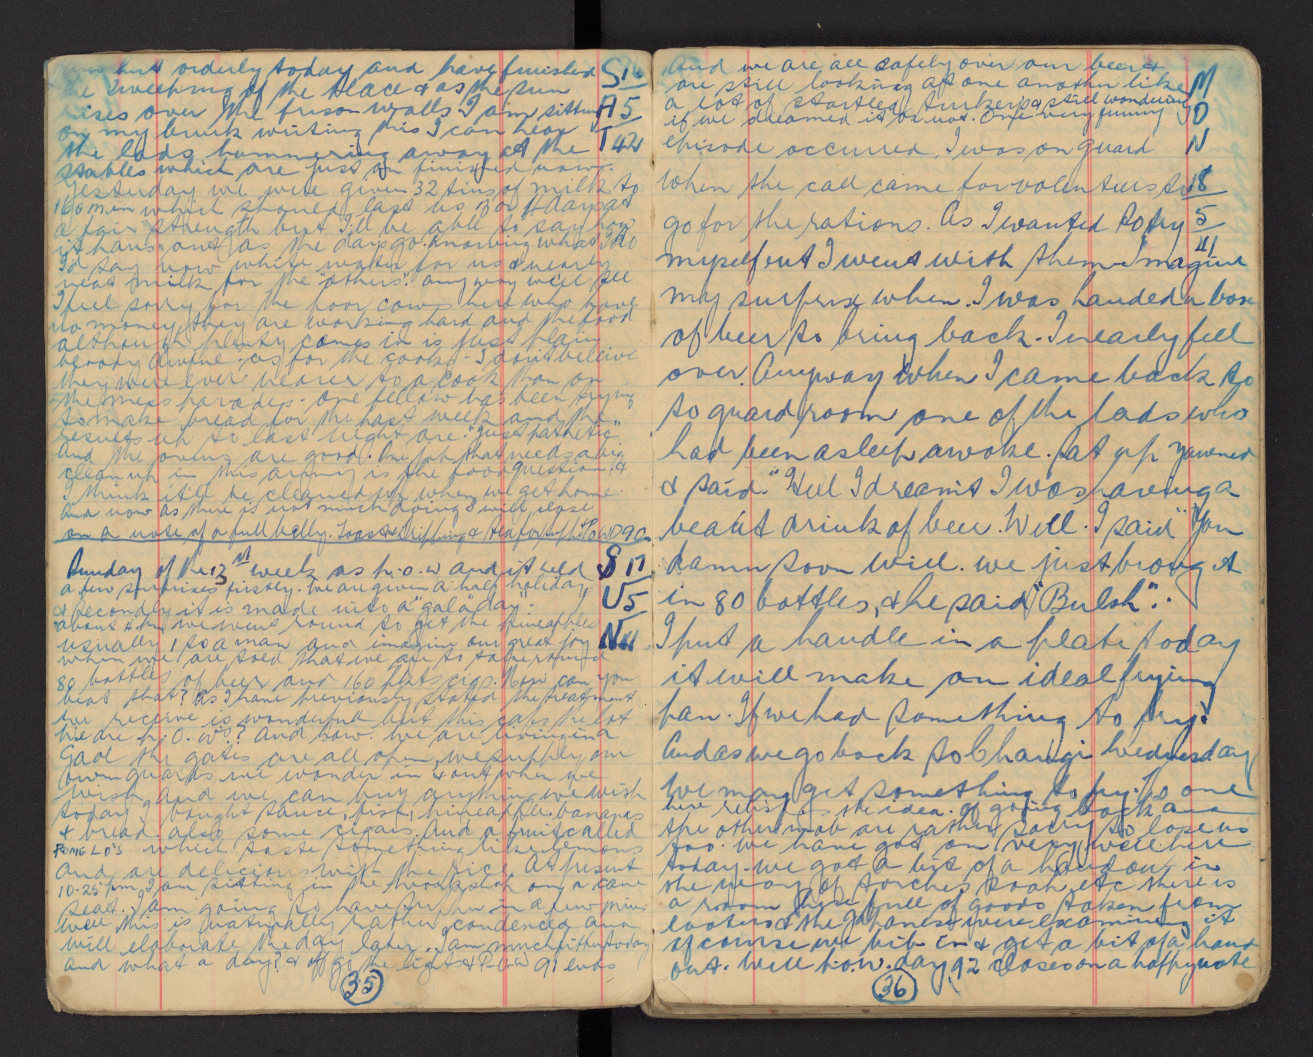 hut orderly today and have finished
the sweeping of the place & as the sun
rises over the prison walls I am sitting
on my bunk writing this I can hear
the lads hammering away at the
stables which are just on finished now.
Yesterday we were given 32 tins of milk to
160 men which should last us 3 or 4 days at
a fair strength but I'll be able to say how
it pans out as the days go. Knowing what I do
I'd say now white water for us & nearly
neat milk for the others. Anyway we'll see
I feel sorry for the poor cows here who have
no money, they are working hard and the food
although plenty comes in is just plain
bloody awful. as for the cooks. I don't believe
they were ever nearer to a cook than on
the mess parades. One fellow has been trying
to make bread for the past week and the
results up to last night are "just pathetic"
and the ovens are good. One job that needs a big
clean up in this army is the food question &
I think it'll be cleaned up when we get home.
And now as there is not much doing I will close
on a note of a full belly. Toast & Dripping & Tea for supper POWD 90
SAT 16/5/42
Sunday of the 13th week as P.O.W and it held
a few surprises firstly. We are given a half holiday
& secondly it is made into a "gala day".
about we went round to get the pineapples
usually 1 to a man and imagine our great joy
when we are told that we are to take round
80 bottles of beer and 160 pkts cigs. Now can you
beat that? As I have previously stated the treatment
we receive is wonderful but this caps the lot
We are P.O.W's? And how. We are living in a
Gaol the gates are all open, we supply our
own guards we wander in & out when we
wish and we can buy anything we wish
today I bought sauce, fish, pineapple, bananas
& bread. also some cigars. and a fruit called
POMELO'S which taste something like lemons
and are delicious with the rice. At present
10.25 pm, I am sitting in the workshop on a cane
seat. I am going to have supper in a few mins
well this is naturally rather condensed and
will elaborate the day later. I am much fitter today
and what a day? & off go the lights & P.O.W 91 ends
SUN 17/5/41
35
and we are all safely over our beer &
are still looking at one another like
a lot of startled turkeys & still wondering
if we dreamed it or not. One very funny
episode occurred, I was on guard
when the call came for volunteers to
go for the rations. As I wanted to try
myself out I went with them. Imagine
my surprise when. I was handed a box
of beer to bring back. I nearly fell
over. Anyway when I came back to
to guard room one of the lads who
had been asleep awoke. Sat up yawned
& said. "Hell I dreamt I was having a
beaut drink of beer. Well. I said "You
damn soon will. we just brought
in 80 bottles, & he said "Bulsh".
I put a handle in a plate today
it will make an ideal frying
pan. If we had something to fry.
And as we go back to Changi Wednesday
we may get something to fry. No one
here relishes the idea. of going back and
the other mob are rather sorry to lose us
too. We have got on very well here
today we got a bit of a hand out in
the way of torches soap etc there is
a room here full of goods taken from
looters & the Japanese were examining it
of course we hib in & get a bit of a hand
out. Well P.O.W. day 92 closes on a happy note
MON 18/5/41
36